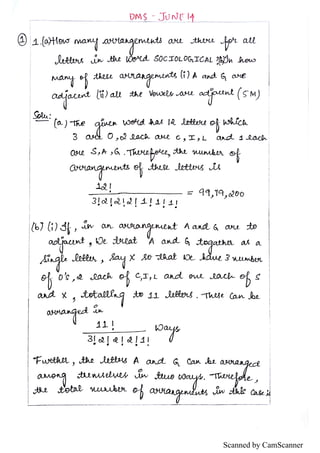 DMS - JUNE 14
① 1.(a) How many arrangements are there for all
letters in the word SOCIOLOGICAL? In how
many of these arrangements (i) A and G are
adjacent (ii) all the vowels are adjacent (5M)
Soln:
(a) The given word has 12 letters of which
3 are O, 2 each are C, I, L and 1 each
are S, A, G. Therefore, the number of
arrangements of these letters is
12! / 3! 2! 2! 2! 1! 1! 1! = 99,79,200
(b) (i) If, in an arrangement A and G are to
adjacent, we treat A and G together as a
single letter, say X so that we have 3 number
of O's, 2 each of C, I, L and one each of S
and X, totalling to 11 letters. These can be
arranged in
11! / 3! 2! 2! 2! 1! ways
Further, the letters A and G can be arranged
among themselves in two ways. Therefore,
the total number of arrangements in this case is
Scanned by CamScanner